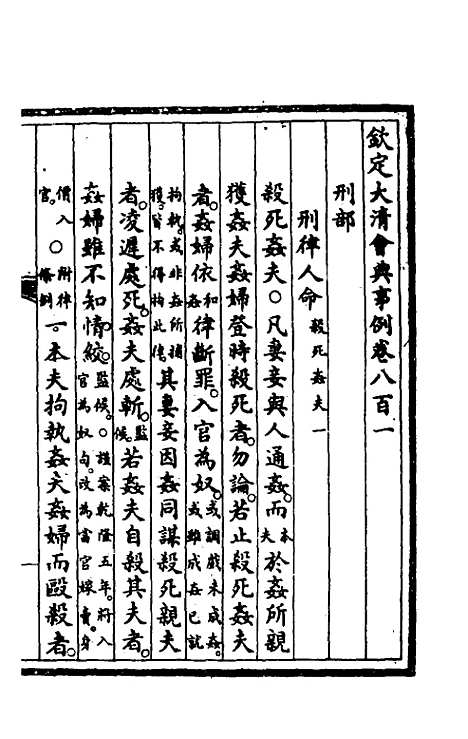 欽定大清會典事例卷八百一
刑部
刑律人命殺死姦夫一
殺死姦夫○凡妻妾與人通姦而本夫於姦所親
獲姦夫姦婦登時殺死者勿論若止殺死姦夫
者姦婦依和姦律斷罪入官為奴或調戲未成姦或雖成姦已就
拘執或非姦所捕獲皆不得拘此律其妻妾因姦同謀殺死親夫
者凌遲處死姦夫處斬監候若姦夫自殺其夫者
姦婦雖不知情絞監候○謹案乾隆五年將入官為奴句改為當官嫁賣身
價入官○附律條例一本夫拘執姦夫姦婦而毆殺者